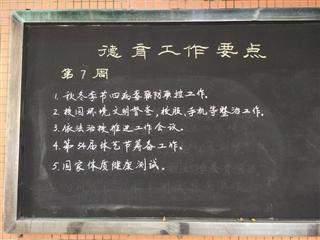 德育工作要点
第7周
1. 秋冬季节四病等联防联控工作。
2. 校园环境文明督查，校服、手机等整治工作。
3. 依法治校推进工作会议。
4. 第54届体艺节筹备工作。
5. 国家体质健康测试。